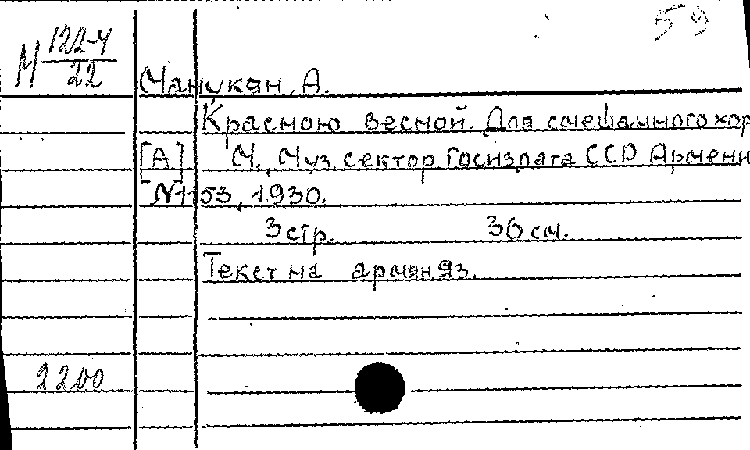 59
М 122-4
22
Манукян, А.
Красною весной. Для смешанного хор
[А] М., Муз. сектор Госиздата ССР Армени
N 1153, 1930.
3 стр. 36 см.
Текст на армян яз.
2200